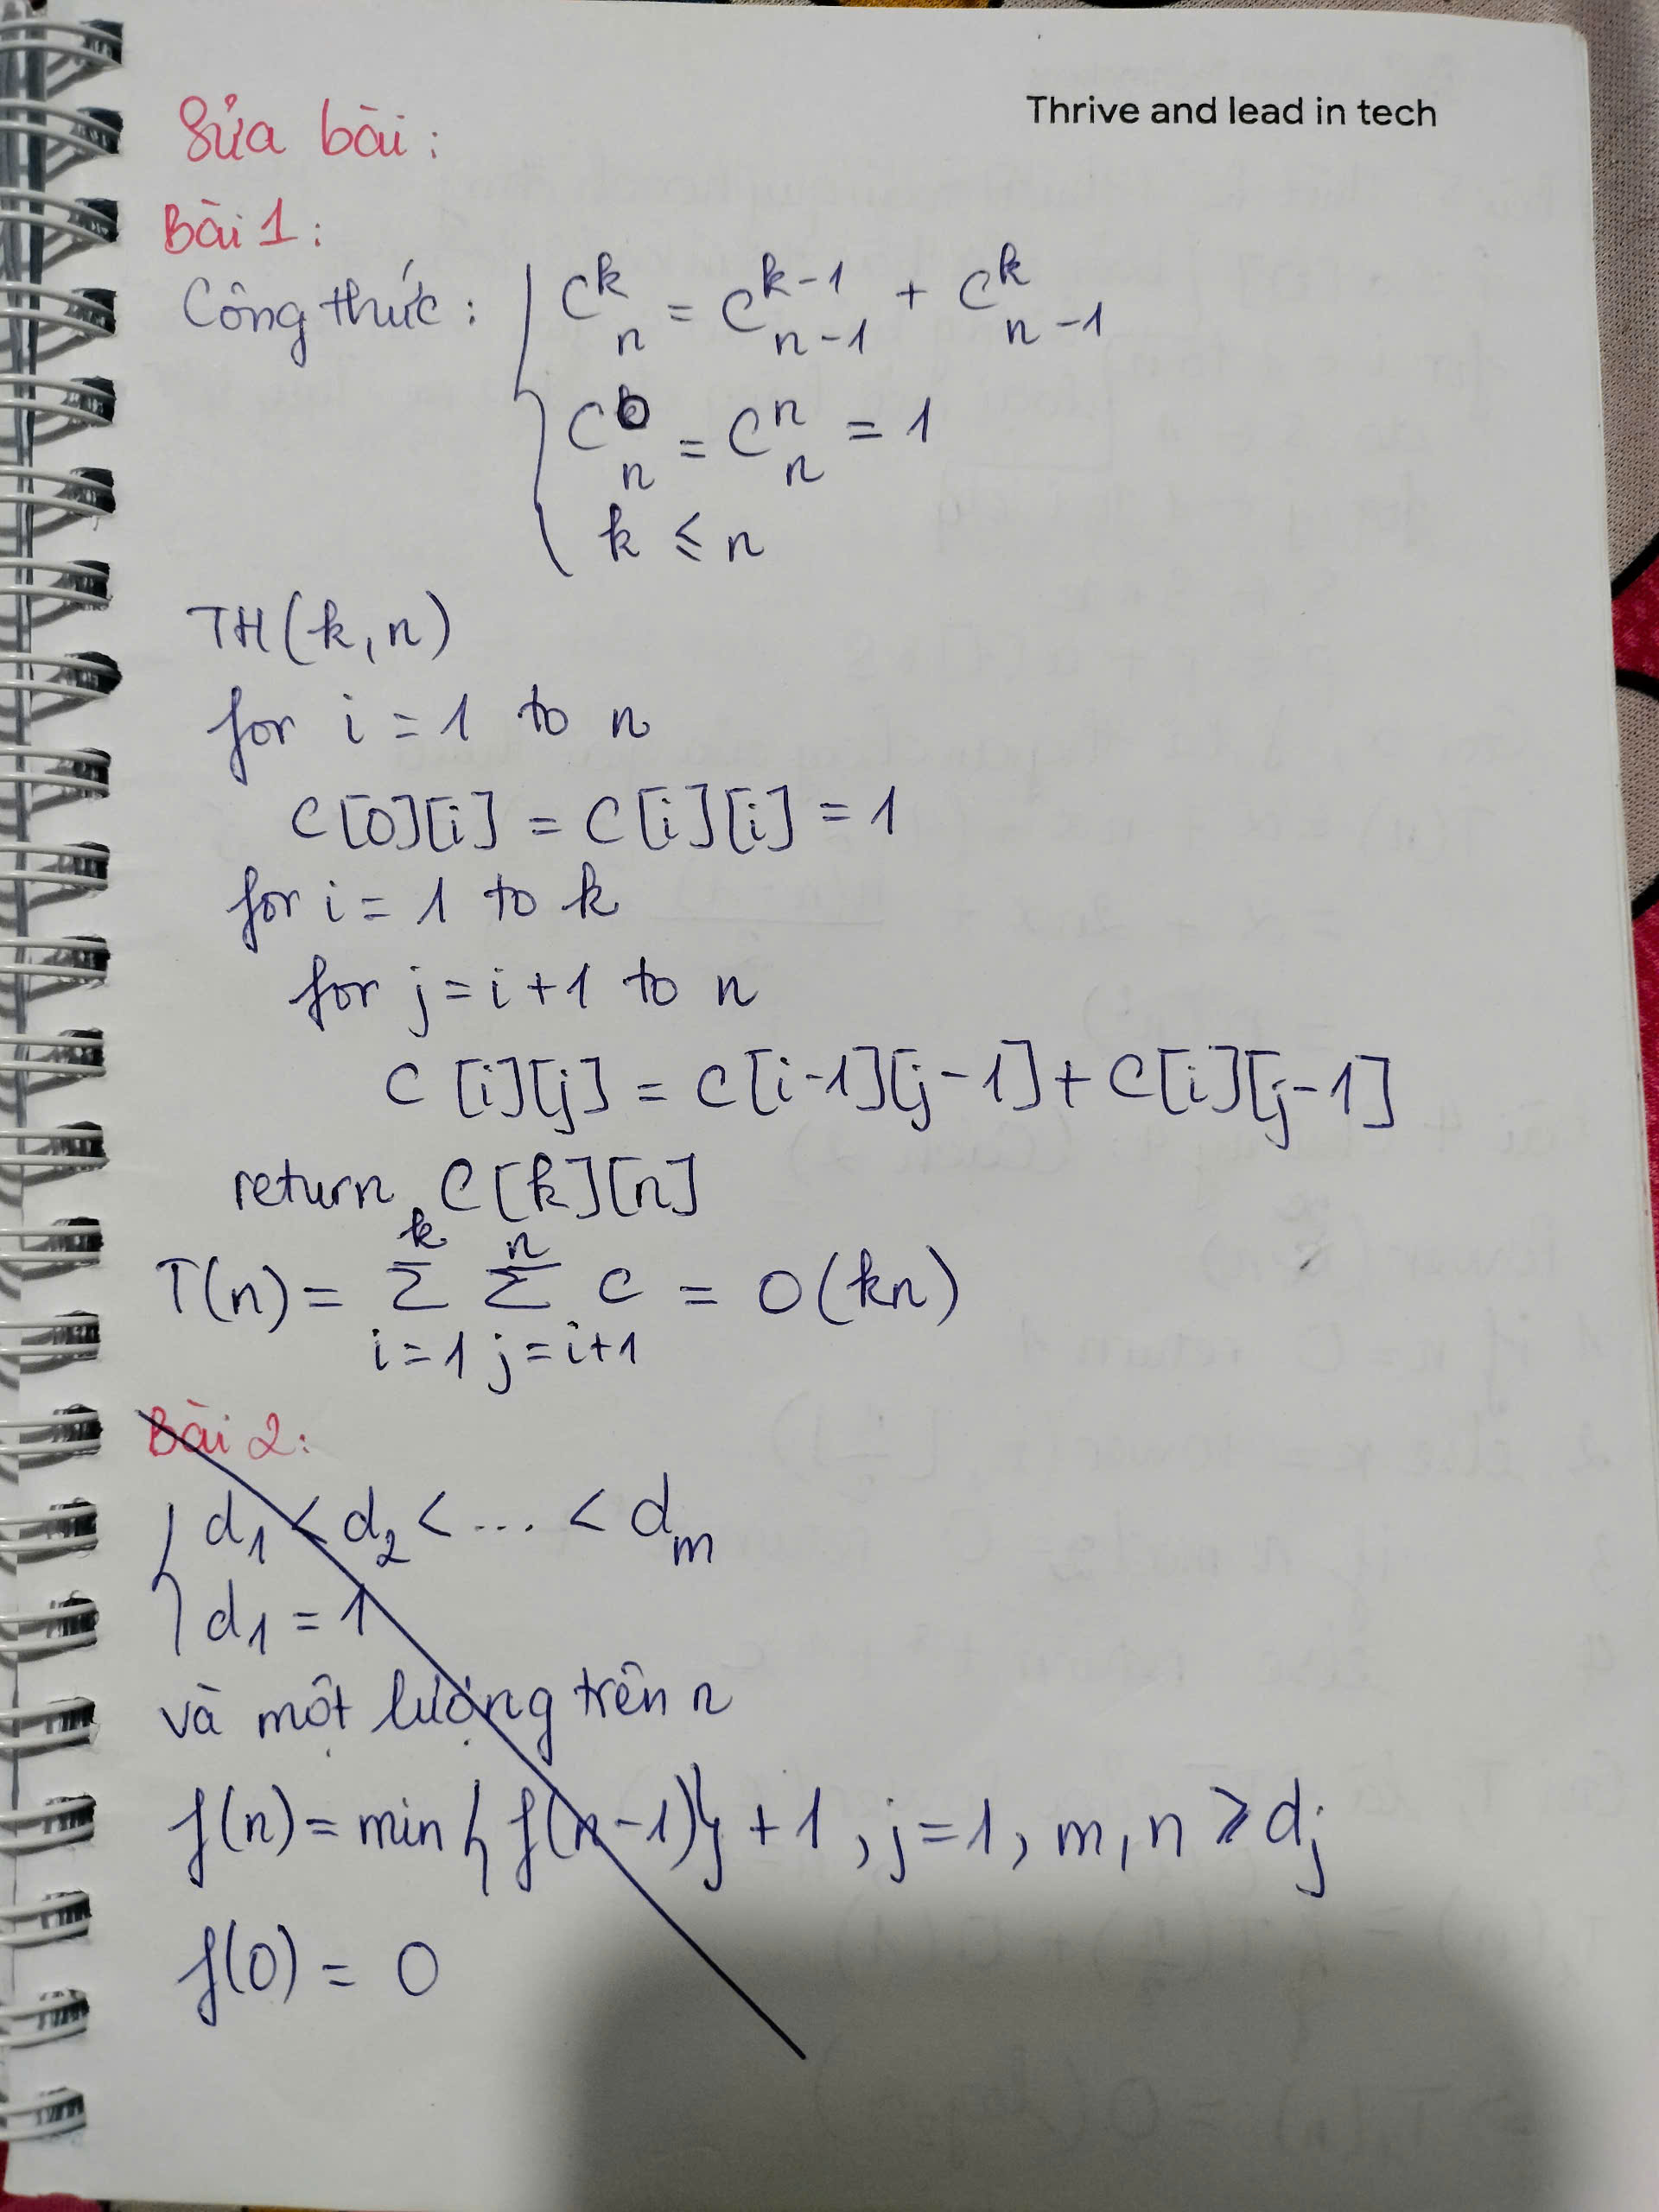 Thrive and lead in tech
Sửa bài:
Bài 1:
Công thức: { C^k_n = C^{k-1}_{n-1} + C^k_{n-1}
C^0_n = C^n_n = 1
k ≤ n
TH(k,n)
for i = 1 to n
C[0][i] = C[i][i] = 1
for i = 1 to k
for j = i+1 to n
C[i][j] = C[i-1][j-1] + C[i][j-1]
return C[k][n]
T(n) = \sum_{i=1}^{k} \sum_{j=i+1}^{n} c = O(kn)
Bài 2:
{ d_1 < d_2 < ... < d_m
d_1 = 1
và một lượng trên n
f(n) = min{f(n-1)} + 1, j=1, m, n ≥ d_j
f(0) = 0